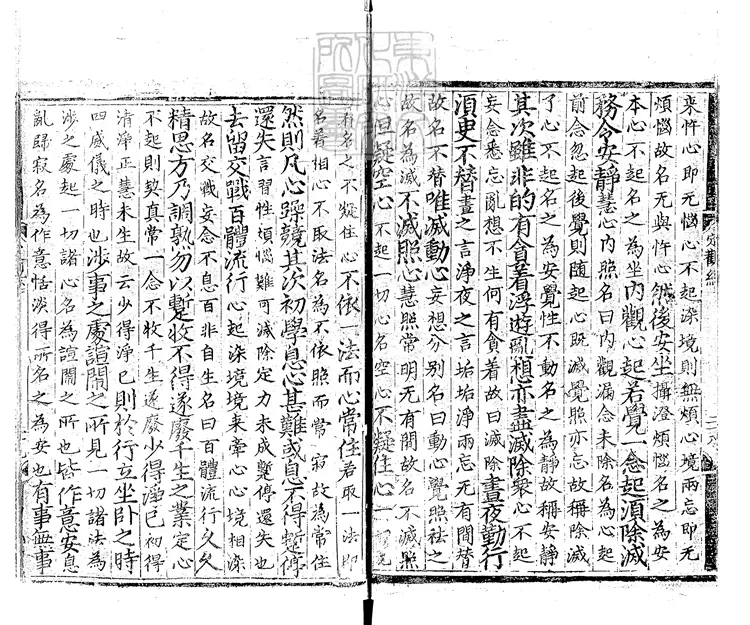 来忤心即无惱心不起染境則無煩心境兩忘即无
煩惱故名无與忤心然後安坐攝澄煩惱名之為安
本心不起名之為坐內觀心起若覺一念起須除滅
務令安靜慧心內照名曰內觀漏念未除名為心起
前念忽起後覺則随起心既滅覺照亦忘故稱除滅
了心不起名之為安覺性不動名之為靜故稱安靜
其次雖非的有貪著浮遊亂想亦盡滅除衆心不起
妄念悉忘亂想不生何有貪著故曰滅除晝夜勤行
須臾不替晝之言淨夜之言垢垢淨兩忘无有間替
故名不替唯滅動心妄想分別名曰動心覺照祛之
故名為滅不滅照心慧照常明无有間故名不滅照
心但凝空心不起一切心名空心不凝住心一
有名之不凝住心不依一法而心常住若取一法即
名著相心不取法名為不依照而常寂故為常住
然則凡心躁競其次初學息心甚難或息不得暫停
還失言習性煩惱難可滅除定力未成蹔停還失也
去留交戰百體流行心起染境境来牽心心境相染
故名交戰妄念不息百非自生名曰百體流行久久
精思方乃調熟勿以蹔收不得遂廢千生之業定心
不起則契真常一念不收千生遂廢少得淨已初得
清淨正慧未生故云少得淨已則於行立坐卧之時
四威儀之時也涉事之處諠閙之所見一切諸法為
涉之處起一切諸心名為諠閙之所也皆作意安息
亂歸寂名為作意恬淡得所名之為安也有事無事
定觀經